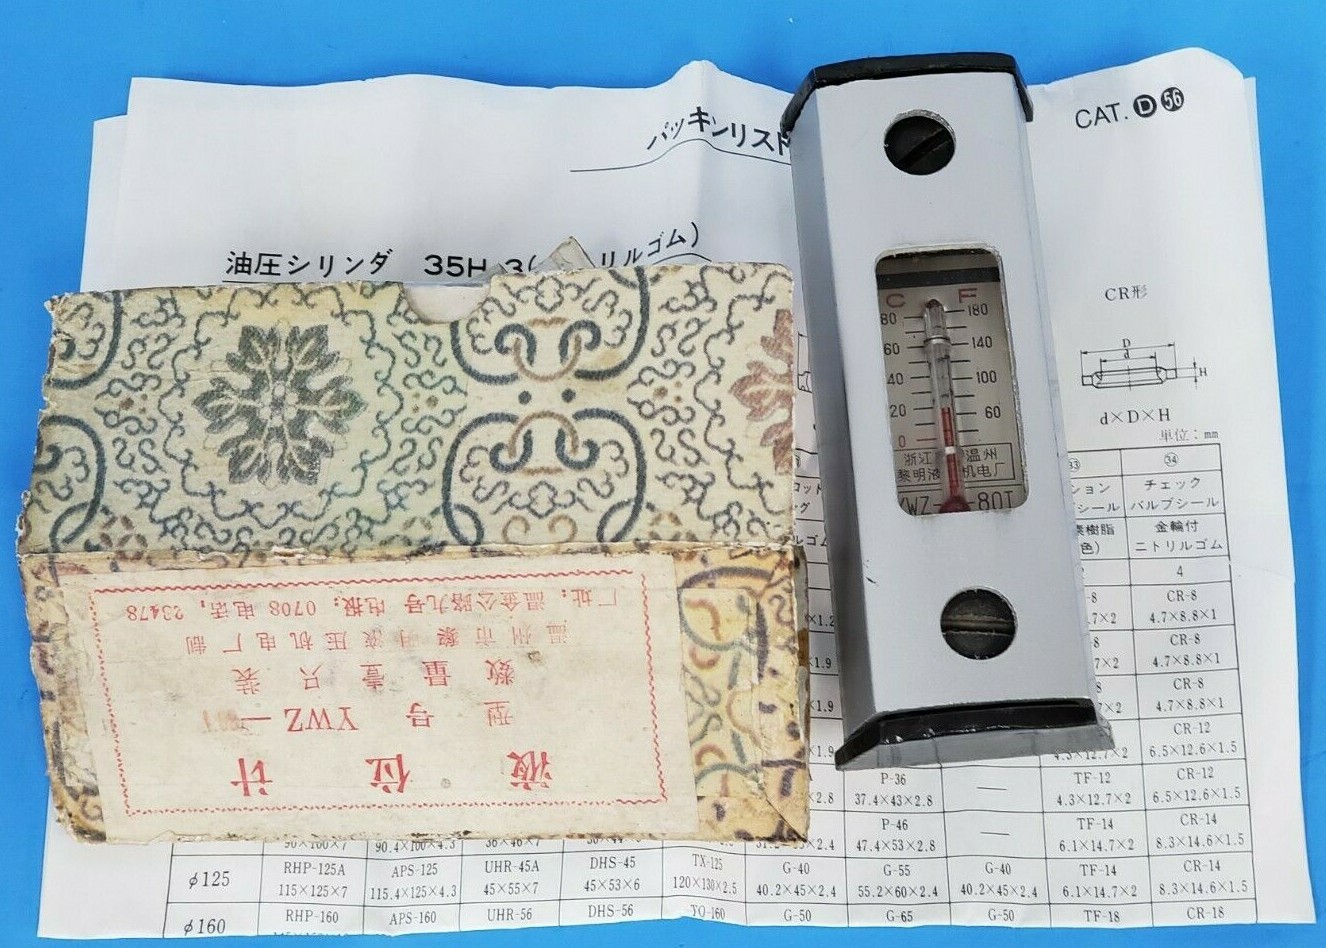 パッキンリスト
CAT. D 56
油圧シリンダ 35H-3( リルゴム)
CR形
D
d
H
d×D×H
単位：mm
C F
80 180
60 140
40 100
20 60
0
浙江 温州
黎明液 机电厂
YWZ- 80T
液位计
型号 YWZ-
数量壹只装
温州市黎明液压机电厂制
厂址：温金公路九号 电报：0708 电话：23478
㉝ ㉞
ション チェック
シール バルブシール
樹脂 金輪付
色) ニトリルゴム
4
-8 CR-8
.7×2 4.7×8.8×1
×1.2
8 CR-8
7×2 4.7×8.8×1
×1.9
8 CR-8
7×2 4.7×8.8×1
×1.9
CR-12
×1.9 4.3×12.7×2 6.5×12.6×1.5
P-36 — TF-12 CR-12
×2.8 37.4×43×2.8 4.3×12.7×2 6.5×12.6×1.5
P-46 — TF-14 CR-14
90×100×7 90.4×100×4.3 36×46×7 47.4×53×2.8 6.1×14.7×2 8.3×14.6×1.5
φ125 RHP-125A APS-125 UHR-45A DHS-45 TX-125 G-40 G-55 G-40 TF-14 CR-14
115×125×7 115.4×125×4.3 45×55×7 45×53×6 120×130×2.5 40.2×45×2.4 55.2×60×2.4 40.2×45×2.4 6.1×14.7×2 8.3×14.6×1.5
φ160 RHP-160 APS-160 UHR-56 DHS-56 G-50 G-65 G-50 TF-18 CR-18